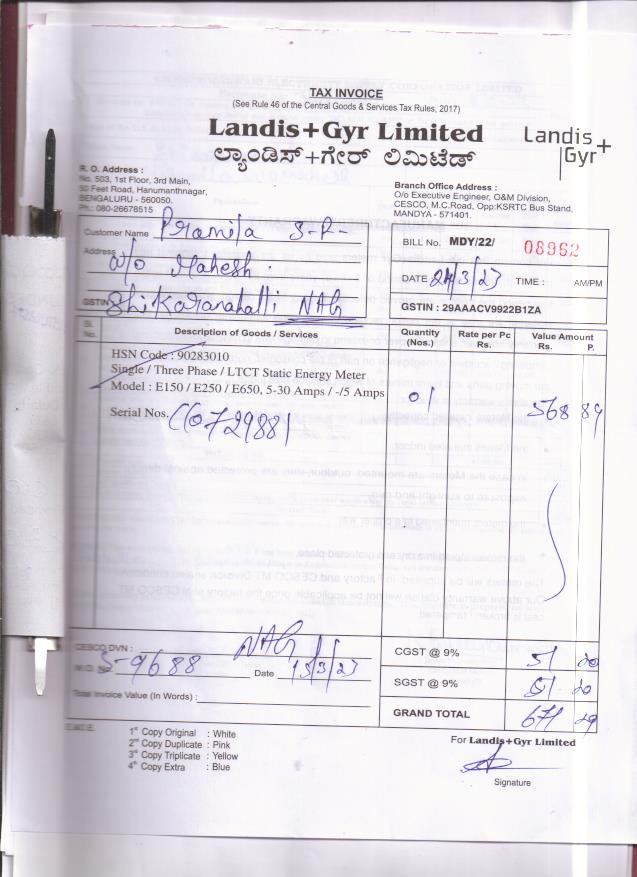 TAX INVOICE
(See Rule 46 of the Central Goods & Services Tax Rules, 2017)
Landis+Gyr Limited
ಲ್ಯಾಂಡಿಸ್+ಗೇರ್ ಲಿಮಿಟೆಡ್
Landis+
Gyr
R. O. Address :
No. 503, 1st Floor, 3rd Main,
50 Feet Road, Hanumanthnagar,
BENGALURU - 560050.
Ph.: 080-26678515
Branch Office Address :
O/o Executive Engineer, O&M Division,
CESCO, M.C.Road, Opp:KSRTC Bus Stand,
MANDYA - 571401.
Customer Name Pramila S-R-
Address w/o Mahesh.
GSTIN Shikaranahalli NAG
BILL No. MDY/22/ 08962
DATE 24/3/23 TIME : AM/PM
GSTIN : 29AAACV9922B1ZA
Sl. No. Description of Goods / Services Quantity (Nos.) Rate per Pc Rs. Value Amount Rs. P.
HSN Code : 90283010
Single / Three Phase / LTCT Static Energy Meter
Model : E150 / E250 / E650, 5-30 Amps / -/5 Amps 01 568 89
Serial Nos.
CESCO DVN : NAG
M.O. No. S-9688 Date 15/3/23
Total Invoice Value (In Words) :
CGST @ 9% 51 20
SGST @ 9% 51 20
GRAND TOTAL 671 29
E.&O.E.
1st Copy Original : White
2nd Copy Duplicate : Pink
3rd Copy Triplicate : Yellow
4th Copy Extra : Blue
For Landis+Gyr Limited
Signature